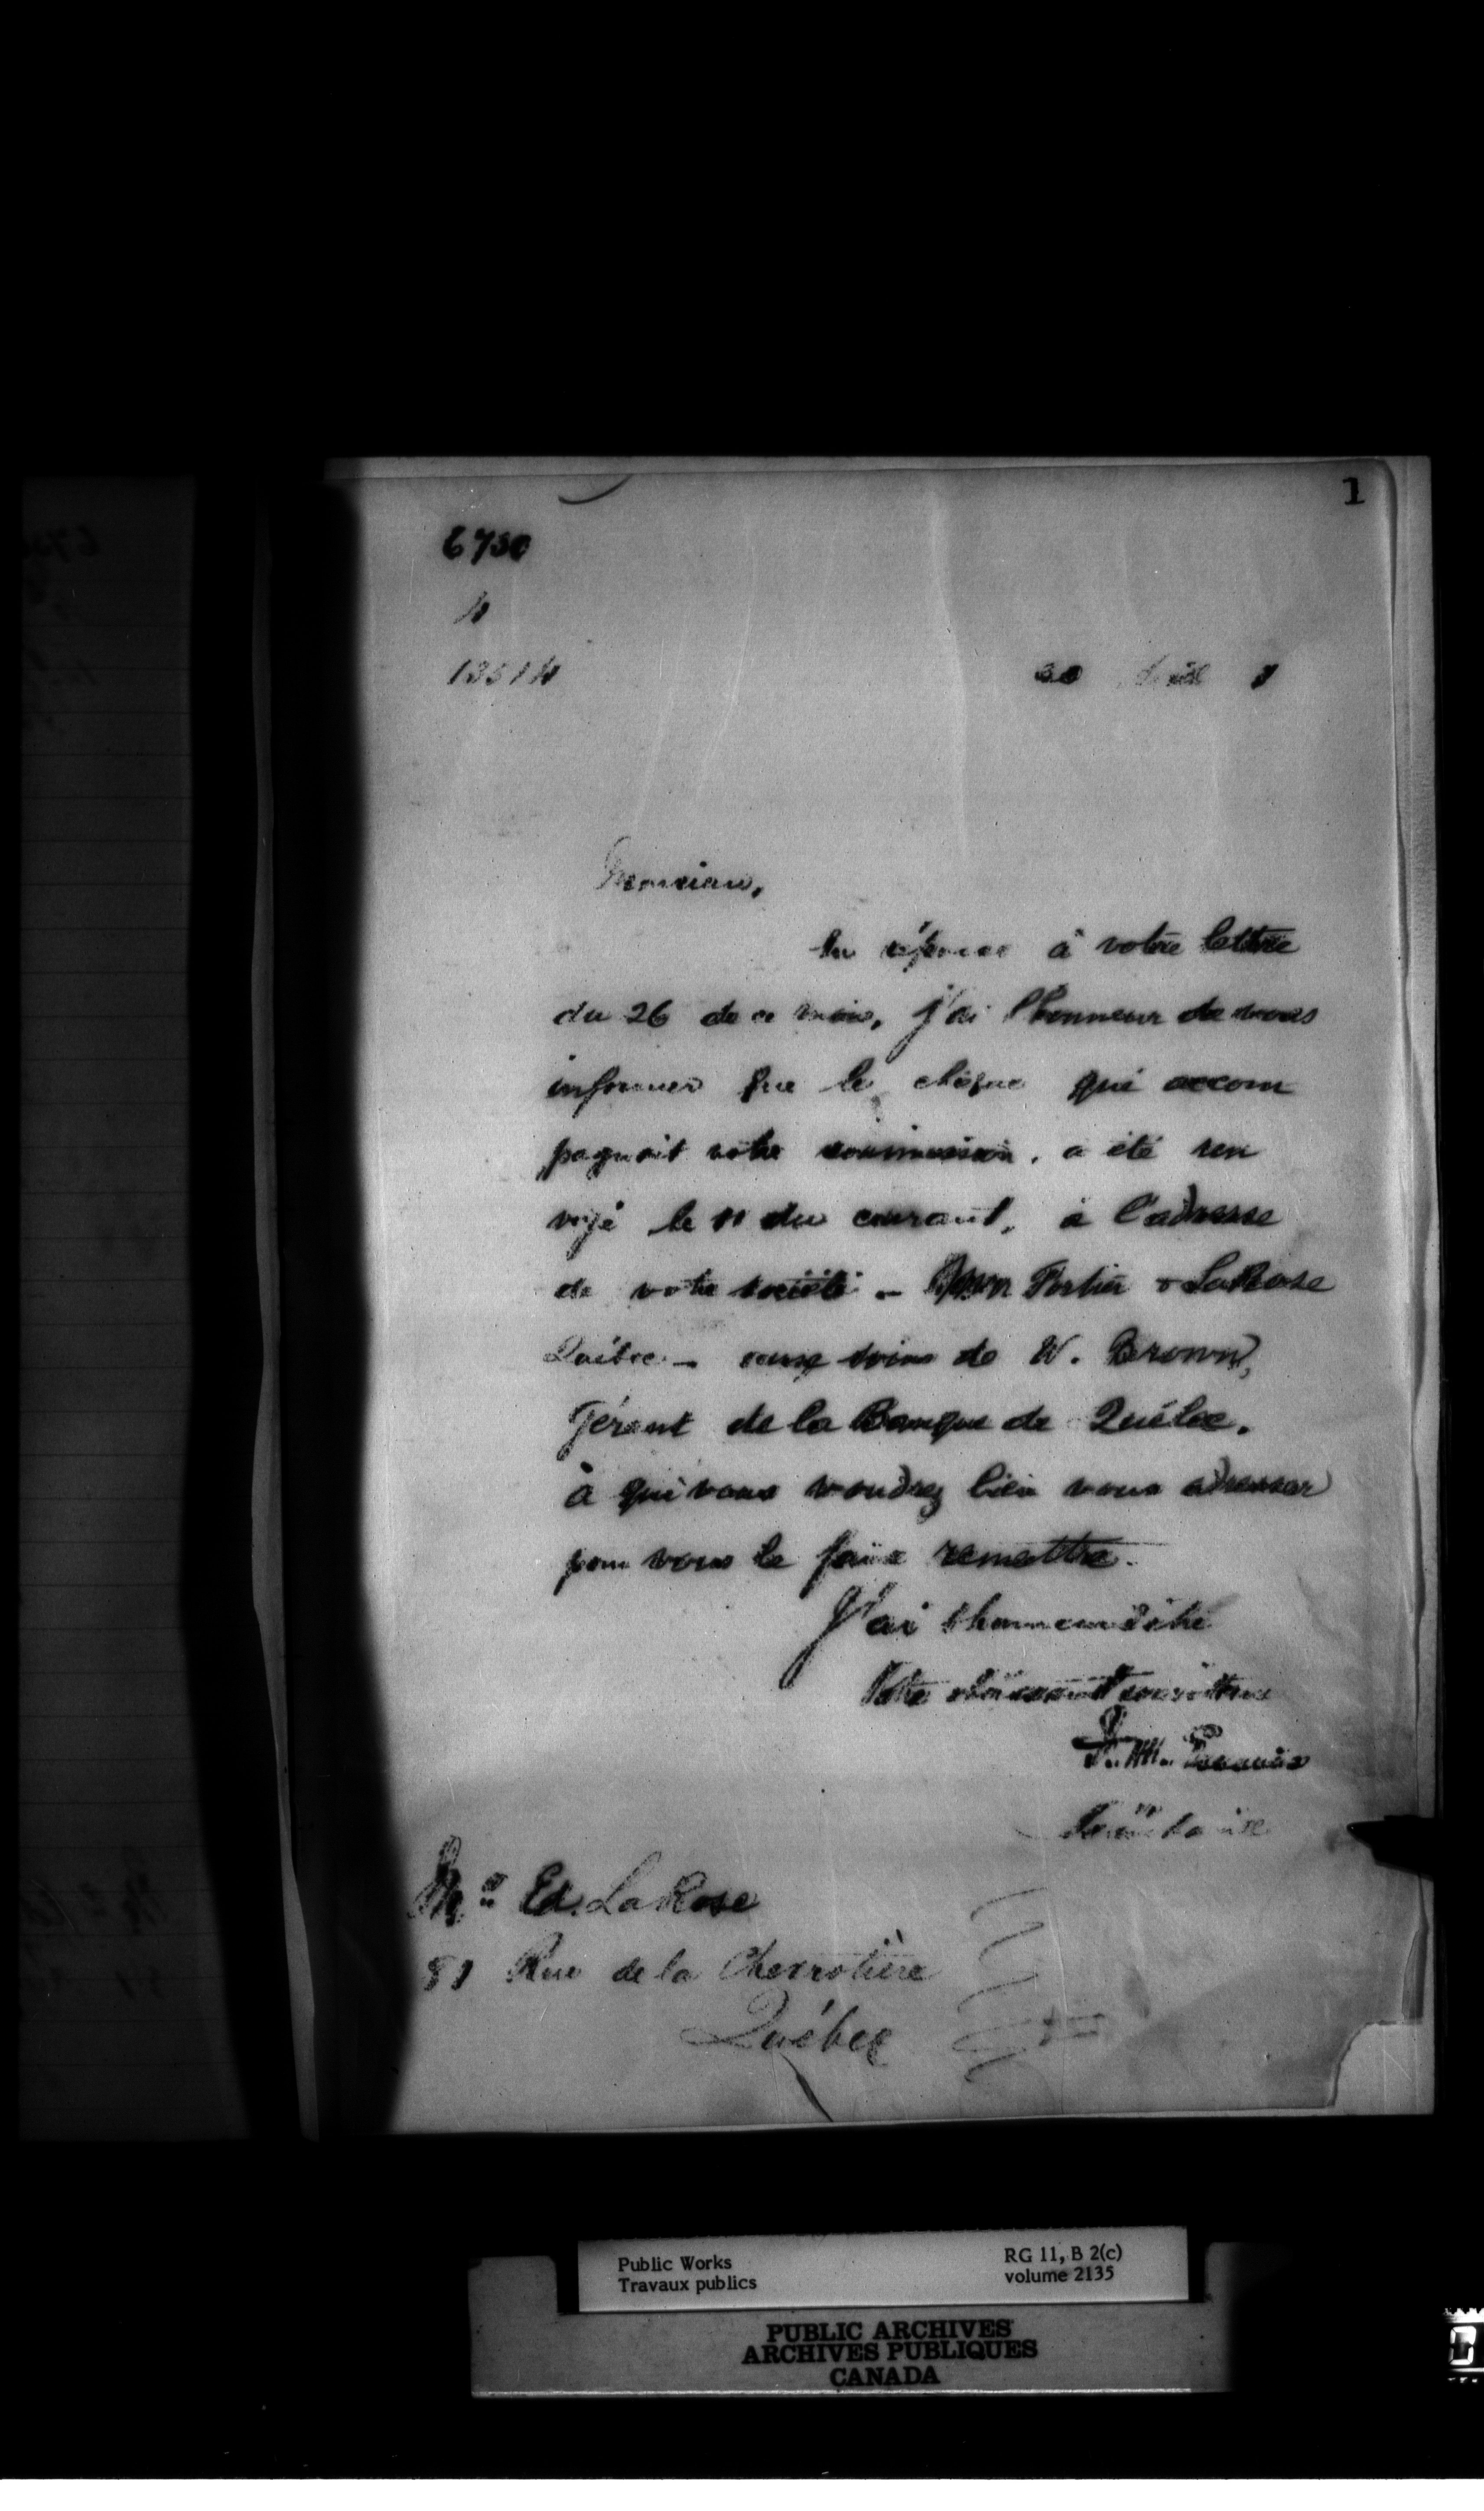 1
6750
30 Août 8
Monsieur,
En réponse à votre lettre
du 26 de ce mois, j'ai l'honneur de vous
informer que le chèque qui accom
pagnait votre soumission, a été ren
voyé le 11 du courant, à l'adresse
de votre société - Fortier & LaRose
Québec - aux soins de W. Brown,
Gérant de la Banque de Québec,
à qui vous voudrez bien vous adresser
pour vous le faire remettre.
J'ai l'honneur d'être
Votre obéissant serviteur
Secrétaire
Mr Ed. LaRose
81 Rue de la Chevrotière
Québec
Public Works
Travaux publics
RG 11, B 2(c)
volume 2135
PUBLIC ARCHIVES
ARCHIVES PUBLIQUES
CANADA